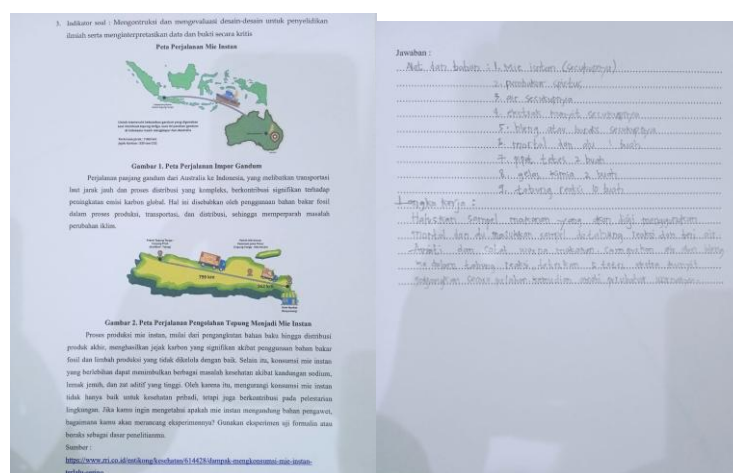 3. Indikator soal : Mengontruksi dan mengevaluasi desain-desain untuk penyelidikan
ilmiah serta menginterpretasikan data dan bukti secara kritis
Peta Perjalanan Mie Instan
Gambar 1. Peta Perjalanan Impor Gandum
Perjalanan panjang gandum dari Australia ke Indonesia, yang melibatkan transportasi
laut jarak jauh dan proses distribusi yang kompleks, berkontribusi signifikan terhadap
peningkatan emisi karbon global. Hal ini disebabkan oleh penggunaan bahan bakar fosil
dalam proses produksi, transportasi, dan distribusi, sehingga memperparah masalah
perubahan iklim.
Gambar 2. Peta Perjalanan Pengolahan Tepung Menjadi Mie Instan
Proses produksi mie instan, mulai dari pengangkutan bahan baku hingga distribusi
produk akhir, menghasilkan jejak karbon yang signifikan akibat penggunaan bahan bakar
fosil dan limbah produksi yang tidak dikelola dengan baik. Selain itu, konsumsi mie instan
yang berlebihan dapat menimbulkan berbagai masalah kesehatan akibat kandungan sodium,
lemak jenuh, dan zat aditif yang tinggi. Oleh karena itu, mengurangi konsumsi mie instan
tidak hanya baik untuk kesehatan pribadi, tetapi juga berkontribusi pada pelestarian
lingkungan. Jika kamu ingin mengetahui apakah mie instan mengandung bahan pengawet,
bagaimana kamu akan merancang eksperimennya? Gunakan eksperimen uji formalin atau
boraks sebagai dasar penelitianmu.
Sumber :
https://www.rri.co.id/entikong/kesehatan/614428/dampak-mengkonsumsi-mie-instan-
terlalu-sering
Jawaban :
Alat dan bahan : 1. Mie instan (secukupnya)
2. pembakar spirtus
3. air secukupnya
4. ekstrak kunyit secukupnya
5. bleng atau boraks secukupnya
6. mortal dan alu 1 buah
7. pipet tetes 2 buah
8. gelas kimia 2 buah
9. tabung reaksi 10 buah
Langka kerja :
Haluskan sampel makanan yang akan diuji menggunakan
mortal dan alu masukkan sampel ditabung reaksi dan beri air
dan catat warna makanan campurkan air dan bleng
ke dalam tabung reaksi tetes kunyit
kemudian amati perubahan warnanya